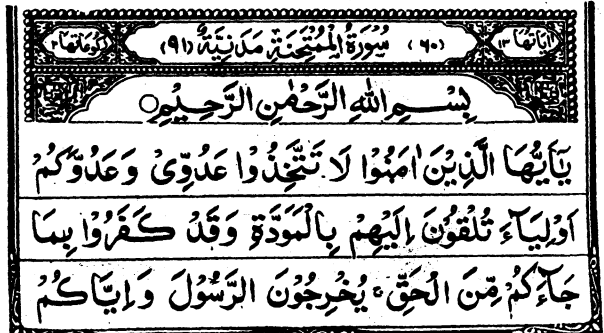 اٰيَاتُهَا ١٣ (٦٠) سُوْرَةُ الْمُمْتَحِنَةِ مَدَنِيَّةٌ (٩١) رُكُوْعَاتُهَا ٢
بِسْمِ اللّٰهِ الرَّحْمٰنِ الرَّحِيْمِ
يٰۤاَيُّهَا الَّذِيْنَ اٰمَنُوْا لَا تَتَّخِذُوْا عَدُوِّيْ وَعَدُوَّكُمْ
اَوْلِيَآءَ تُلْقُوْنَ اِلَيْهِمْ بِالْمَوَدَّةِ وَقَدْ كَفَرُوْا بِمَا
جَآءَكُمْ مِّنَ الْحَقِّ ۚ يُخْرِجُوْنَ الرَّسُوْلَ وَاِيَّاكُمْ